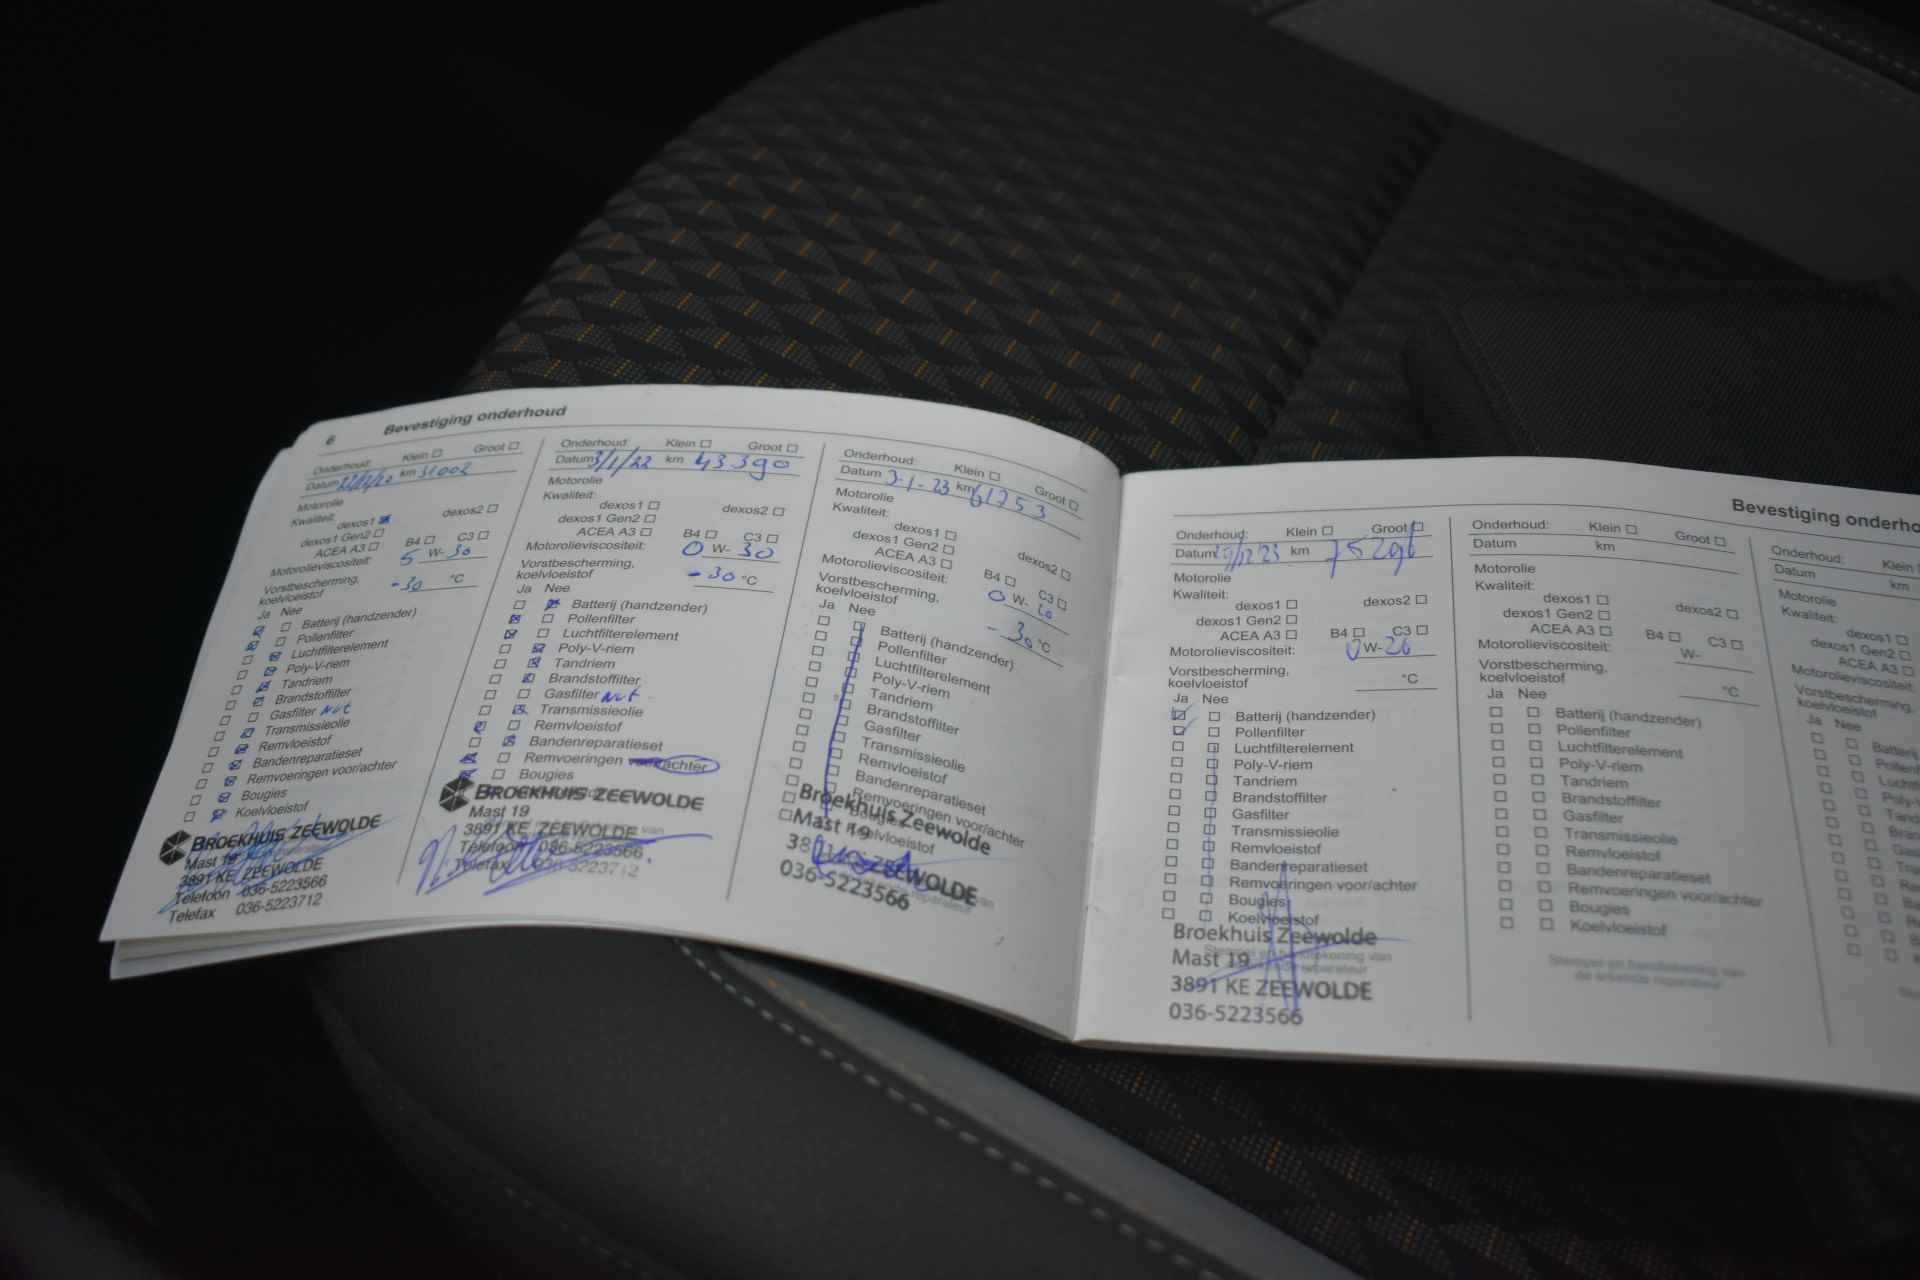 6 Bevestiging onderhoud
Onderhoud: Klein Groot
Datum km 31002
Motorolie
Kwaliteit:
dexos1 dexos2
dexos1 Gen2
ACEA A3 B4 C3
Motorolieviscositeit: 5 W- 30
Vorstbescherming,
koelvloeistof -30 °C
Ja Nee
Batterij (handzender)
Pollenfilter
Luchtfilterelement
Poly-V-riem
Tandriem
Brandstoffilter
Gasfilter nvt
Transmissieolie
Remvloeistof
Bandenreparatieset
Remvoeringen voor/achter
Bougies
Koelvloeistof
BROEKHUIS ZEEWOLDE
Mast 19
3891 KE ZEEWOLDE
Telefoon 036-5223566
Telefax 036-5223712
Onderhoud: Klein Groot
Datum 3/1/22 km 43390
Motorolie
Kwaliteit:
dexos1 dexos2
dexos1 Gen2
ACEA A3 B4 C3
Motorolieviscositeit: 0 W- 30
Vorstbescherming,
koelvloeistof -30 °C
Ja Nee
Batterij (handzender)
Pollenfilter
Luchtfilterelement
Poly-V-riem
Tandriem
Brandstoffilter
Gasfilter nvt
Transmissieolie
Remvloeistof
Bandenreparatieset
Remvoeringen voor/achter
Bougies
BROEKHUIS ZEEWOLDE
Mast 19
3891 KE ZEEWOLDE
Telefoon 036-5223566
Telefax 036-5223712
Onderhoud: Klein Groot
Datum 3-1-23 km 61253
Motorolie
Kwaliteit:
dexos1 dexos2
dexos1 Gen2
ACEA A3 B4 C3
Motorolieviscositeit: 0 W- 20
Vorstbescherming,
koelvloeistof -30 °C
Ja Nee
Batterij (handzender)
Pollenfilter
Luchtfilterelement
Poly-V-riem
Tandriem
Brandstoffilter
Gasfilter
Transmissieolie
Remvloeistof
Bandenreparatieset
Remvoeringen voor/achter
Bougies
Koelvloeistof
Broekhuis Zeewolde
Mast 19
ZEEWOLDE
036-5223566
Bevestiging
Onderhoud: Klein Groot
Datum km 75296
Motorolie
Kwaliteit:
dexos1 dexos2
dexos1 Gen2
ACEA A3 B4 C3
Motorolieviscositeit: 0 W- 20
Vorstbescherming,
koelvloeistof °C
Ja Nee
Batterij (handzender)
Pollenfilter
Luchtfilterelement
Poly-V-riem
Tandriem
Brandstoffilter
Gasfilter
Transmissieolie
Remvloeistof
Bandenreparatieset
Remvoeringen voor/achter
Bougies
Koelvloeistof
Broekhuis Zeewolde
Mast 19
3891 KE ZEEWOLDE
036-5223566
Onderhoud: Klein Groot
Datum km
Motorolie
Kwaliteit:
dexos1 dexos2
dexos1 Gen2
ACEA A3 B4 C3
Motorolieviscositeit: W-
Vorstbescherming,
koelvloeistof °C
Ja Nee
Batterij (handzender)
Pollenfilter
Luchtfilterelement
Poly-V-riem
Tandriem
Brandstoffilter
Gasfilter
Transmissieolie
Remvloeistof
Bandenreparatieset
Remvoeringen voor/achter
Bougies
Koelvloeistof
Stempel en handtekening van
de erkende reparateur
Onderhoud: Klein
Datum km
Motorolie
Kwaliteit:
dexos1
dexos1 Gen2
ACEA A3
Motorolieviscositeit:
Vorstbescherming,
koelvloeistof
Ja Nee